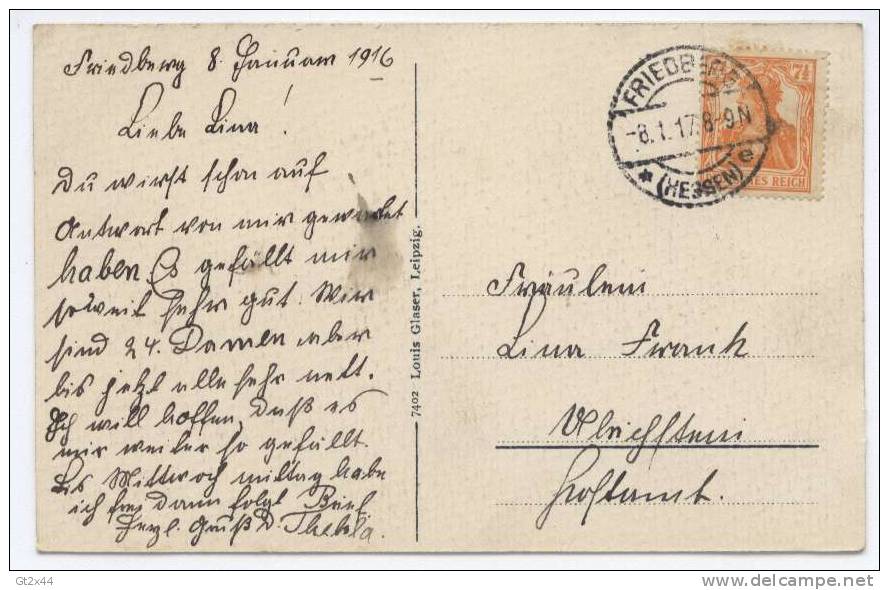 Friedberg 8. Januar 1916
Liebe Lina!
Du wirst schon auf
Antwort von mir gewartet
haben. Es gefällt mir
soweit sehr gut. Wir
sind 24. Damen aber
bis jetzt alle sehr nett.
Ich will hoffen, daß es
mir weiter so gefällt.
Bis Mittwoch mittag habe
ich frei dann folgt Brief.
Herzl. Gruß D. Thekla.
7402 Louis Glaser, Leipzig.
FRIEDBERG
-8.1.17.8-9N
* (HESSEN) e
7½
REICH
Fräulein
Lina Frank
Ulrichstein
Postamt.
Gt2x44
delcampe.net